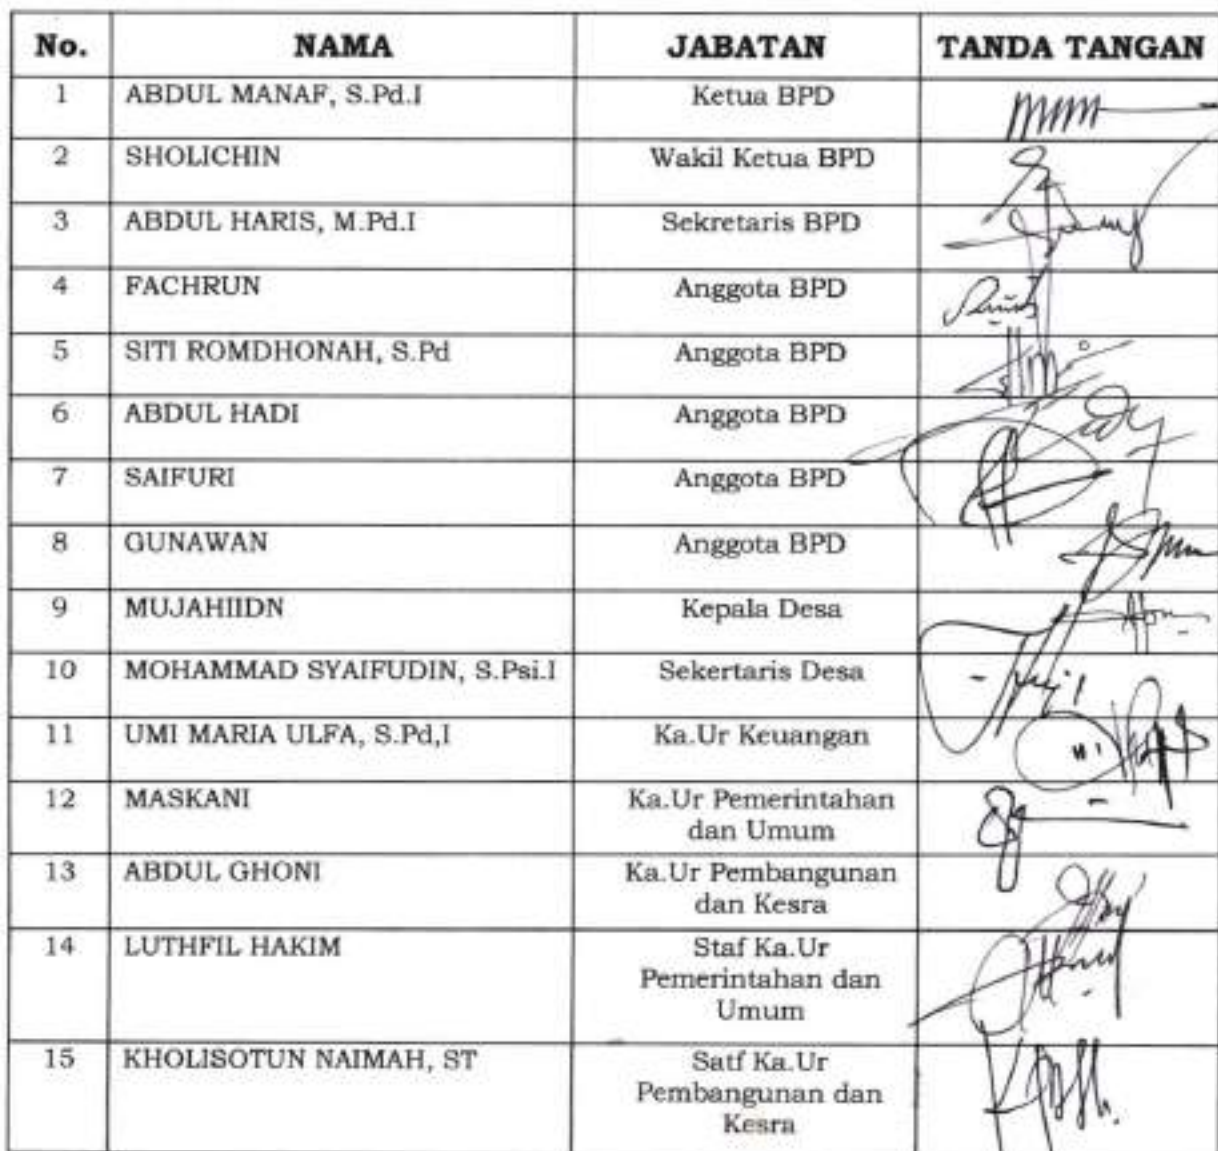 No. NAMA JABATAN TANDA TANGAN
1 ABDUL MANAF, S.Pd.I Ketua BPD
2 SHOLICHIN Wakil Ketua BPD
3 ABDUL HARIS, M.Pd.I Sekretaris BPD
4 FACHRUN Anggota BPD
5 SITI ROMDHONAH, S.Pd Anggota BPD
6 ABDUL HADI Anggota BPD
7 SAIFURI Anggota BPD
8 GUNAWAN Anggota BPD
9 MUJAHIIDN Kepala Desa
10 MOHAMMAD SYAIFUDIN, S.Psi.I Sekertaris Desa
11 UMI MARIA ULFA, S.Pd,I Ka.Ur Keuangan
12 MASKANI Ka.Ur Pemerintahan
dan Umum
13 ABDUL GHONI Ka.Ur Pembangunan
dan Kesra
14 LUTHFIL HAKIM Staf Ka.Ur
Pemerintahan dan
Umum
15 KHOLISOTUN NAIMAH, ST Satf Ka.Ur
Pembangunan dan
Kesra